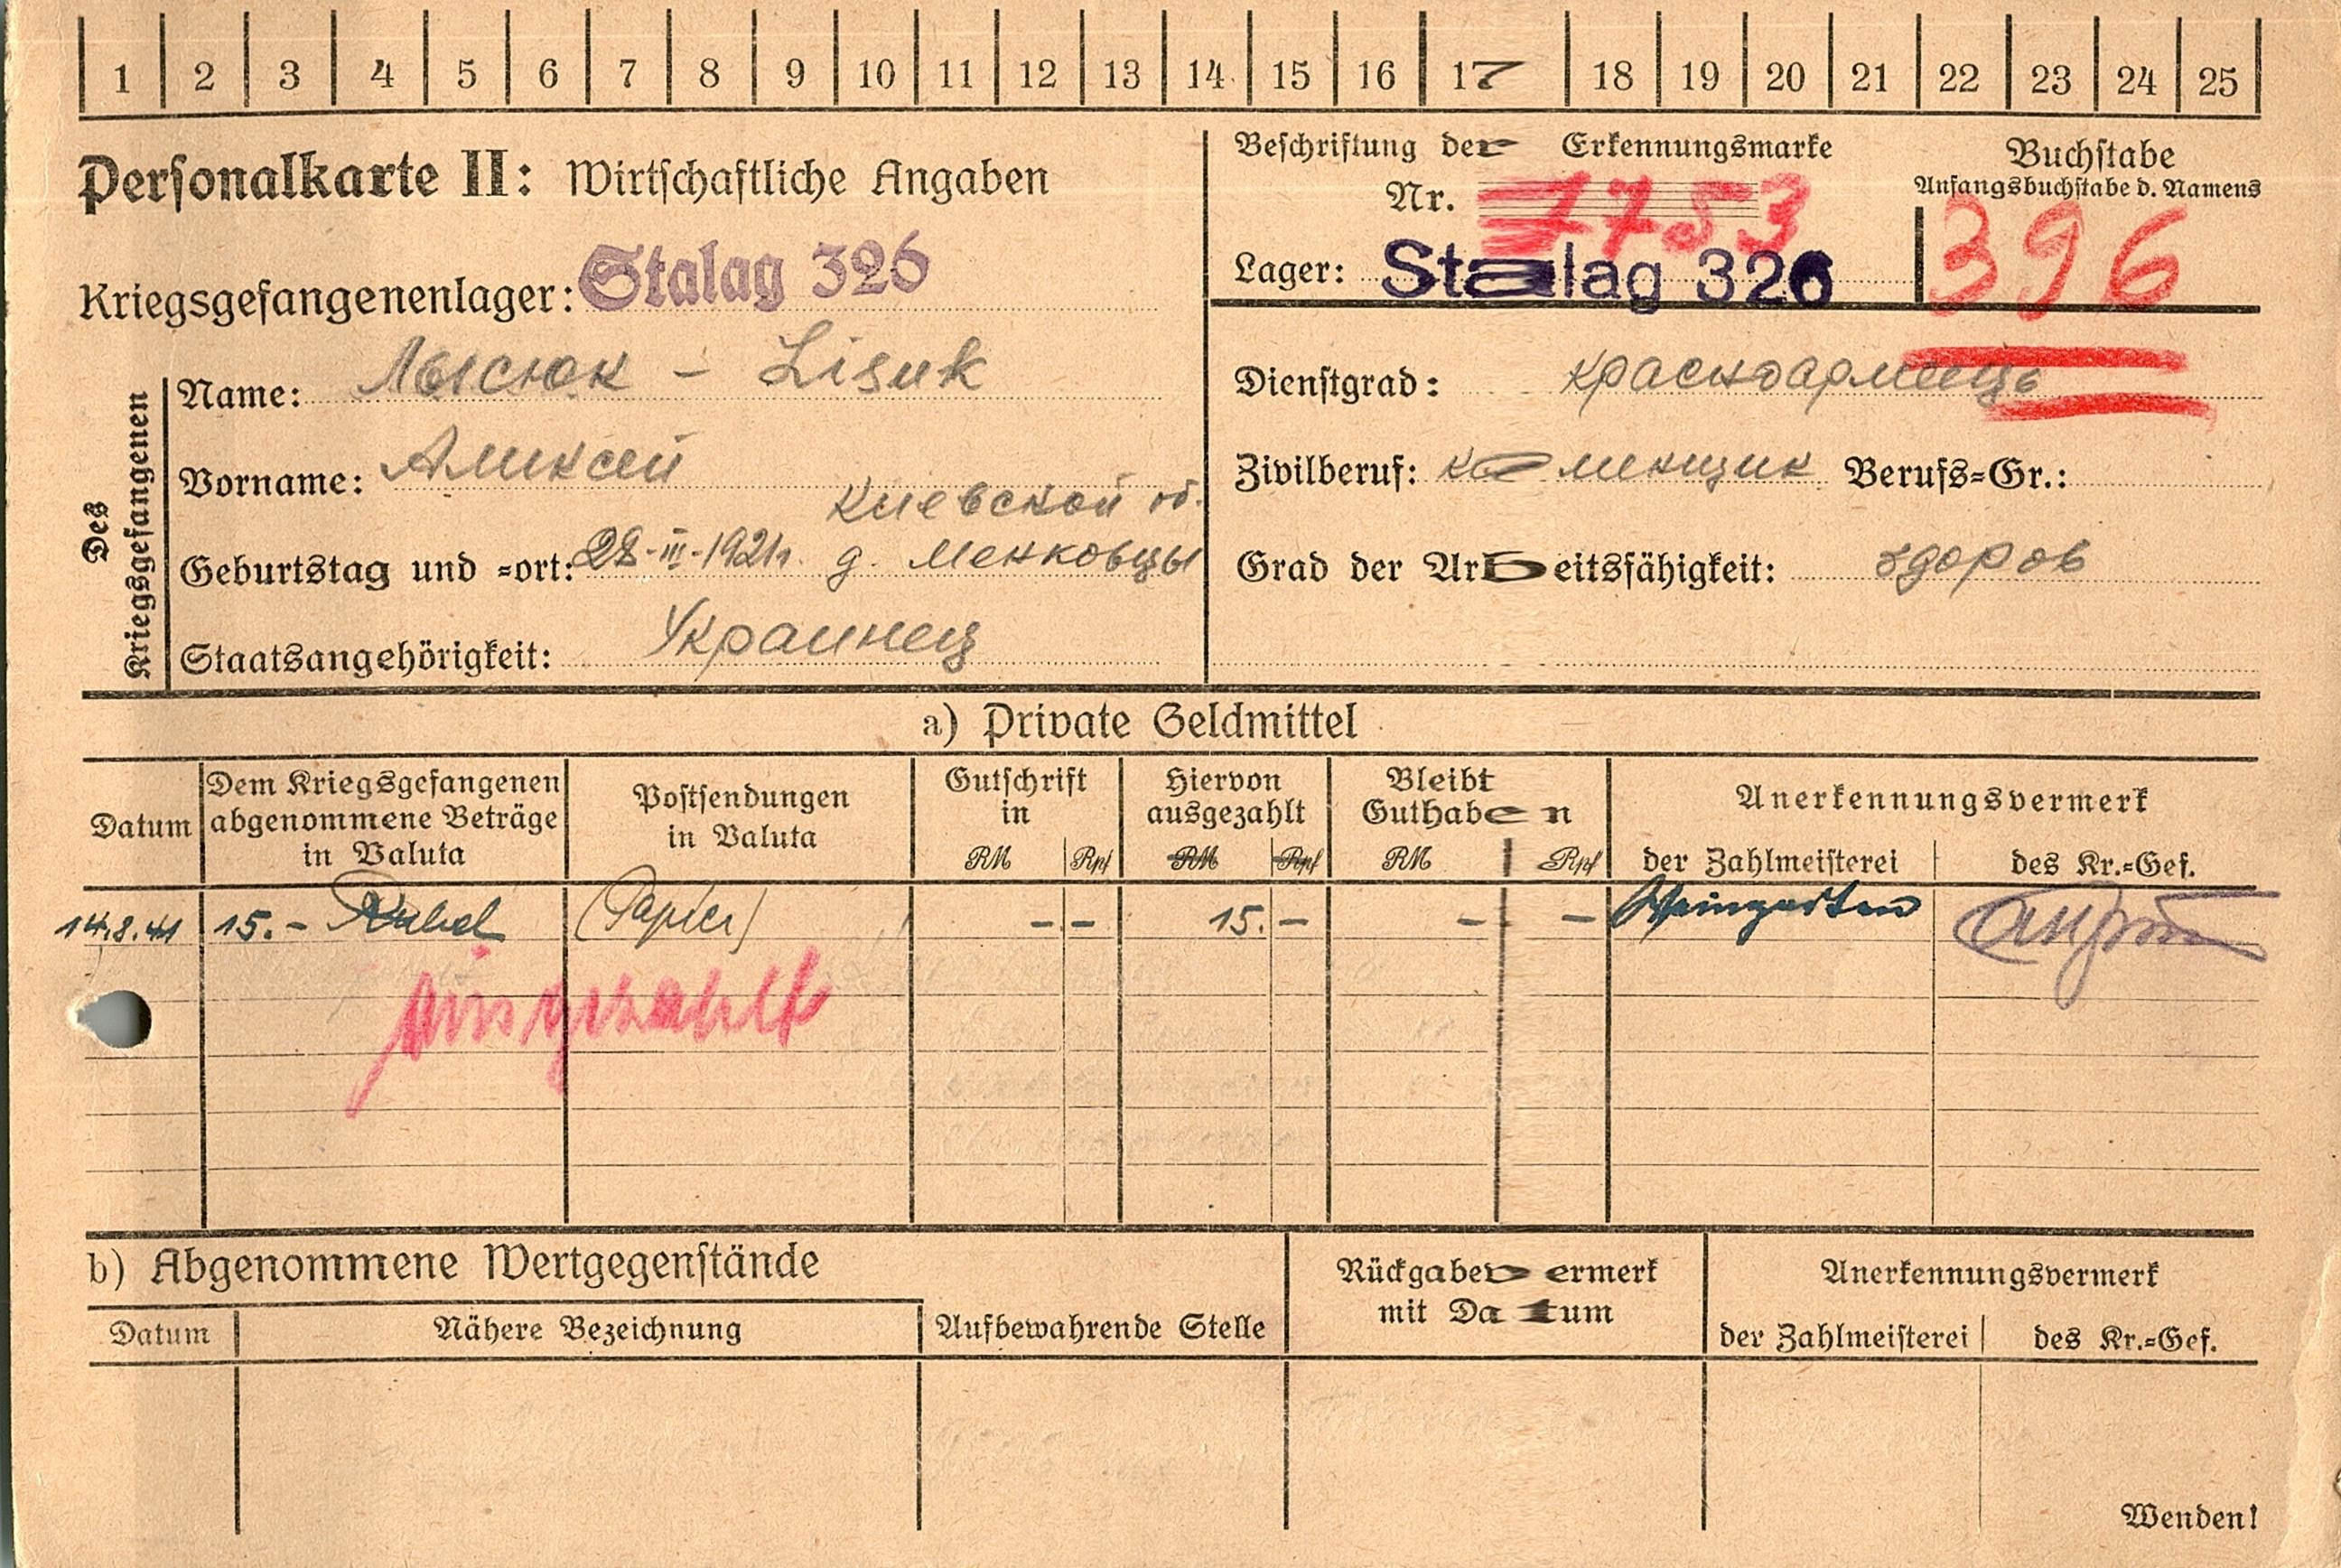 1 2 3 4 5 6 7 8 9 10 11 12 13 14 15 16 17 18 19 20 21 22 23 24 25
Personalkarte II: Wirtschaftliche Angaben
Beschriftung der Erkennungsmarke
Nr. 1753
Lager: Stalag 326
Buchstabe
Anfangsbuchstabe d. Namens
396
Kriegsgefangenenlager: Stalag 326
Des Kriegsgefangenen
Name: Лысюк - Lisuk
Vorname: Алексей
Киевской об.
Geburtstag und =ort: 28-III-1921г. д. Менковцы
Staatsangehörigkeit: Украинец
Dienstgrad: красноармеець
Zivilberuf: каменщик Berufs=Gr.:
Grad der Arbeitsfähigkeit: здоров
a) Private Geldmittel
Datum
Dem Kriegsgefangenen
abgenommene Beträge
in Valuta
Postsendungen
in Valuta
Gutschrift
in
RM Rpf
Hiervon
ausgezahlt
RM Rpf
Bleibt
Guthaben
RM Rpf
Anerkennungsvermerk
der Zahlmeisterei des Kr.=Gef.
14.8.41 15.- Rubel (Papier) - - 15. - - - Weingarten
ausgezahlt
b) Abgenommene Wertgegenstände
Datum Nähere Bezeichnung Aufbewahrende Stelle
Rückgabevermerk
mit Datum
Anerkennungsvermerk
der Zahlmeisterei des Kr.=Gef.
Wenden!